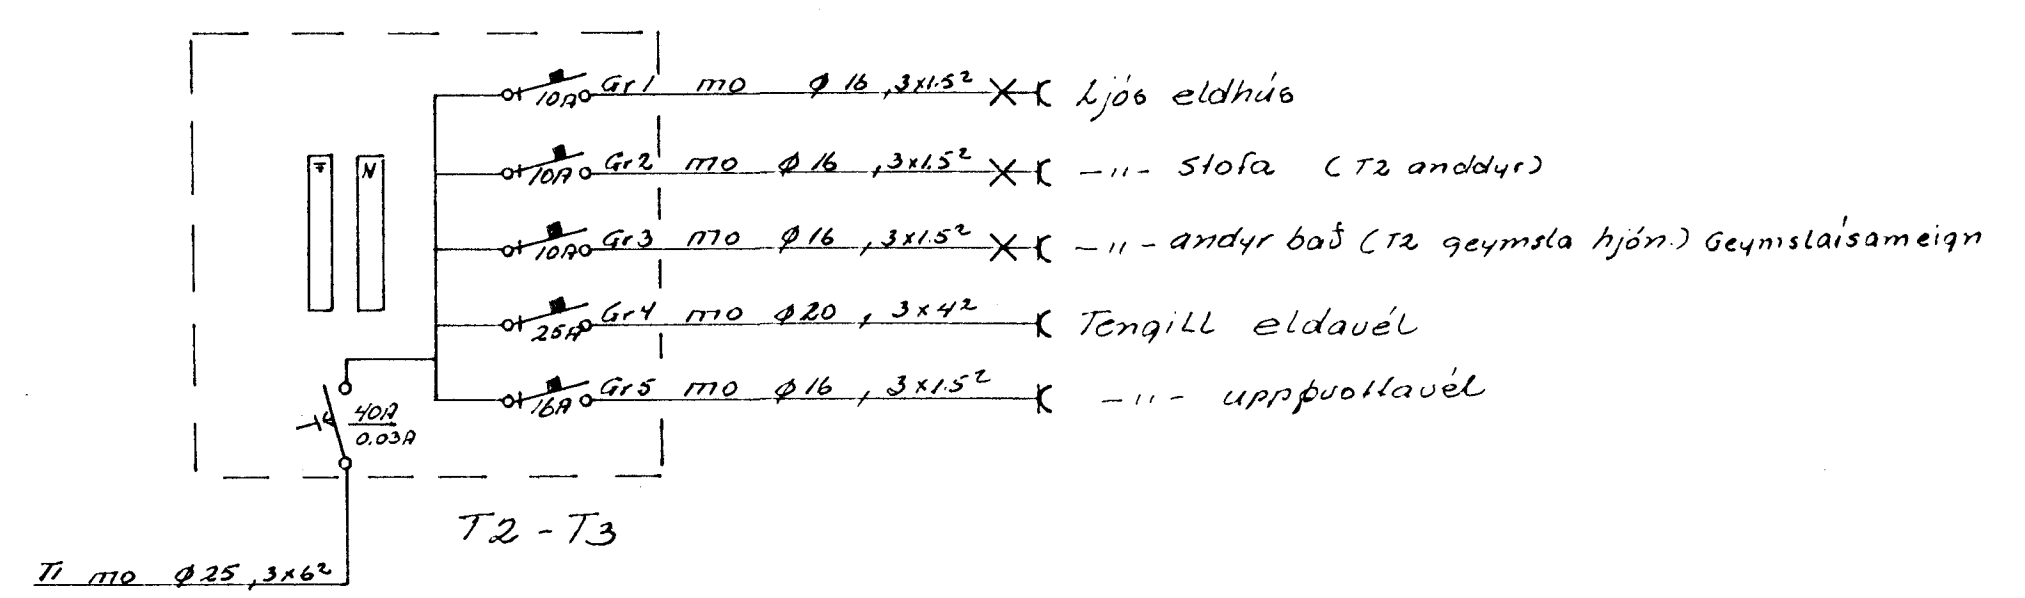 10A Gr1 mo ϕ 16 , 3x1.5² Ljós eldhús
10A Gr2 mo ϕ 16 , 3x1.5² -"- Stofa (T2 anddyr)
10A Gr3 mo ϕ 16 , 3x1.5² -"- andyr bað (T2 geymsla hjón.) Geymslaísameign
25A Gr4 mo ϕ20 , 3x4² Tengill eldavél
16A Gr5 mo ϕ16 , 3x1.5² -"- uppþvottavél
N
40A
0.03A
T2 - T3
T1 mo ϕ 25 , 3x6²